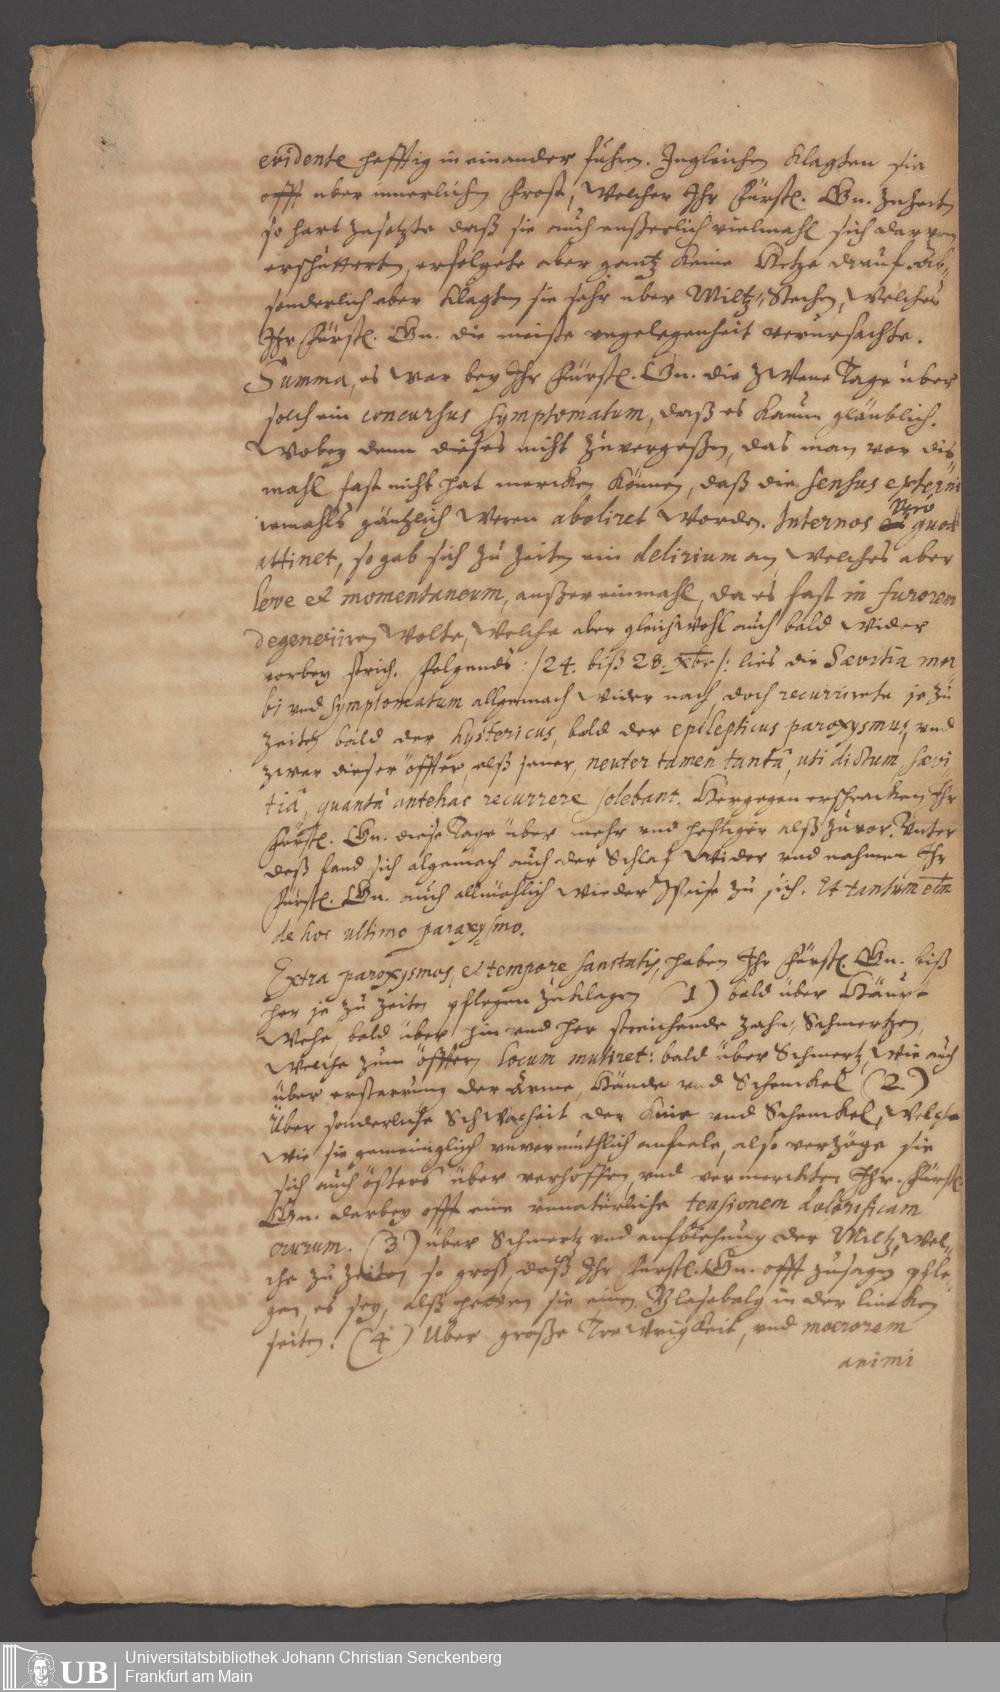 evidente hefftig in einander fuhren. Ingleichen klagten sie
offt uber innerlichen Frost, welcher Ihr Fürstl. Gn. zuzeiten
so hart zusetzte daß sie auch eußerlich vielmahl sich darvon
erschutterten, erfolgete aber gantz keine Hitze drauf. Ab-
sonderlich aber klagten sie sehr uber Miltz-Stechen, welches
Ihr Fürstl. Gn. die meiste ungelegenheit verursachte.
Summa, es war bey Ihr Fürstl. Gn. die zwene Tage uber
solch ein concursus symptomatum, daß es kaum gläublich.
Wobey denn dieses nicht zuvergeßen, das man vor dis
mahl fast nicht hat mercken können, daß die sensus externi
iemahls gäntzlich weren aboliret worden. Internos vero quod
attinet, so gab sich zu zeiten ein delirium an, welches aber
leve et momentaneum, außer einmahl, da es fast in furorem
degeneriren wolte, welche aber gleichwohl auch bald wider
vorbey strich. Folgends :/24. biß 28. Xbr/: lies die Sævitia mor
bi und symptomatum allgemach wider nach, doch recurrirete je zu
zeiten bald der hystericus, bald der epilepticus paroxysmus, und
zwar dieser öffter, alß jener, neuter tamen tantâ, uti dictum, sævi-
tiâ, quantâ antehac recurrere solebant. Hergegen erschracken Ihr
Fürstl. Gn. diese Tage über mehr und hefftiger alß zuvor. Unter
deß fand sich algemach auch der Schlaf wider und nahmen Ihr
Fürstl. Gn. auch allmählich wieder Speise zu sich. Et tantum etm
de hoc ultimo paroxysmo.
Extra paroxysmos, et tempore sanitatis, haben Ihr Fürstl. Gn. biß
her je zu zeiten pflegen zuklagen (1) bald über
Wehe, bald über hin und her streichende Zahn-Schmertzen,
welche zum öfftern locum mutiret: bald über Schmertz, wie auch
über erstarrung der Arme, Hände und Schenckel (2)
Über sonderliche Schwacheit der Knie und Schenckel, welche
wie sie gemeiniglich unvermuthlich anfiele, also verzöge sie
sich auch öfters über verhoffen, und vermerckten Ihr. Fürstl.
Gn. darbey offt eine unnatürliche tensionem dolorificam
crurum. (3) über Schmertz und aufblehung der Miltz, wel-
che zu zeiten so groß, daß Ihr Fürstl. Gn. offt zusagen pfle-
gen, es sey, alß hetten sie einen Blasebalg in der lincken
seiten. (4) Über große Trawrigkeit, und moerorem
animi
UB
Universitätsbibliothek Johann Christian Senckenberg
Frankfurt am Main